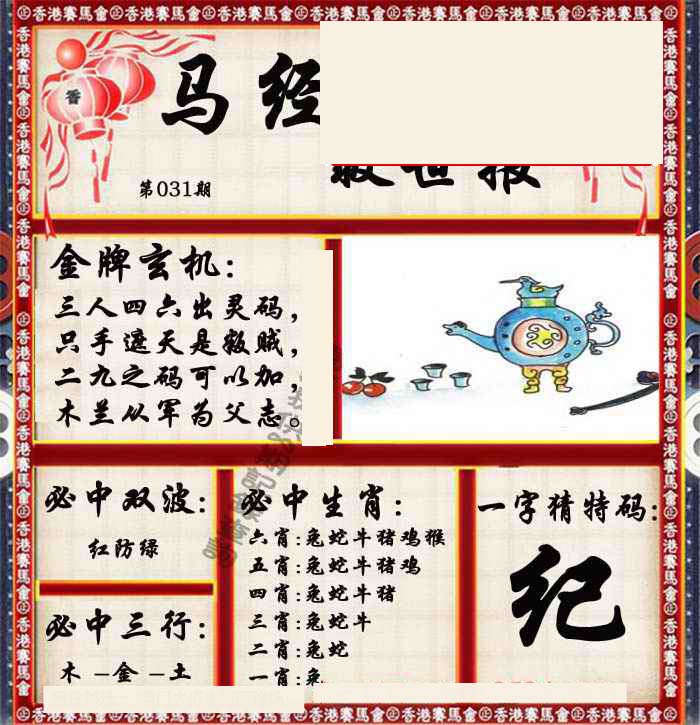 香港賽馬會
马经
救世报
第031期
金牌玄机:
三人四六出灵码，
只手遮天是叛贼，
二九之码可以加，
木兰从军为父志。
必中双波:
红防绿
必中三行:
木－金－土
必中生肖:
六肖:兔蛇牛猪鸡猴
五肖:兔蛇牛猪鸡
四肖:兔蛇牛猪
三肖:兔蛇牛
二肖:兔蛇
一肖:兔
一字猜特码:
纪